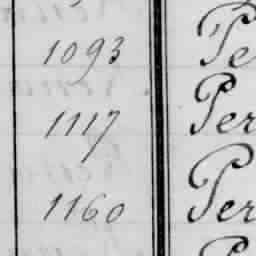 1093 Pe
1117 Per
1160 Per